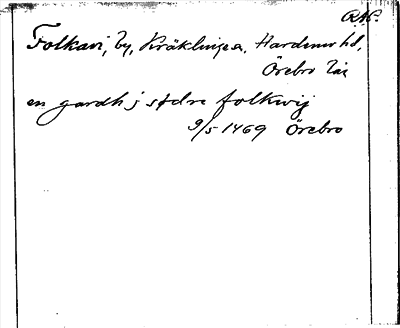 RAP.
Folkavi, by, Kräklinge s. Hardemo hd,
Örebro län
en gardh j sødre folkwij
9/5 1469 Örebro